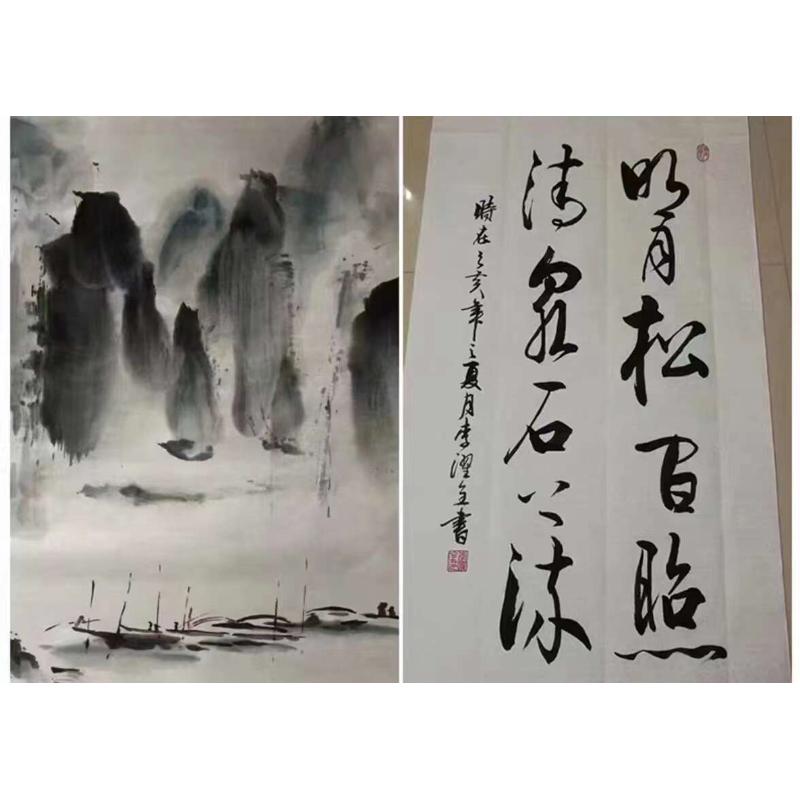 明月松间照
清泉石上流
時在己亥年之夏月李濯全書